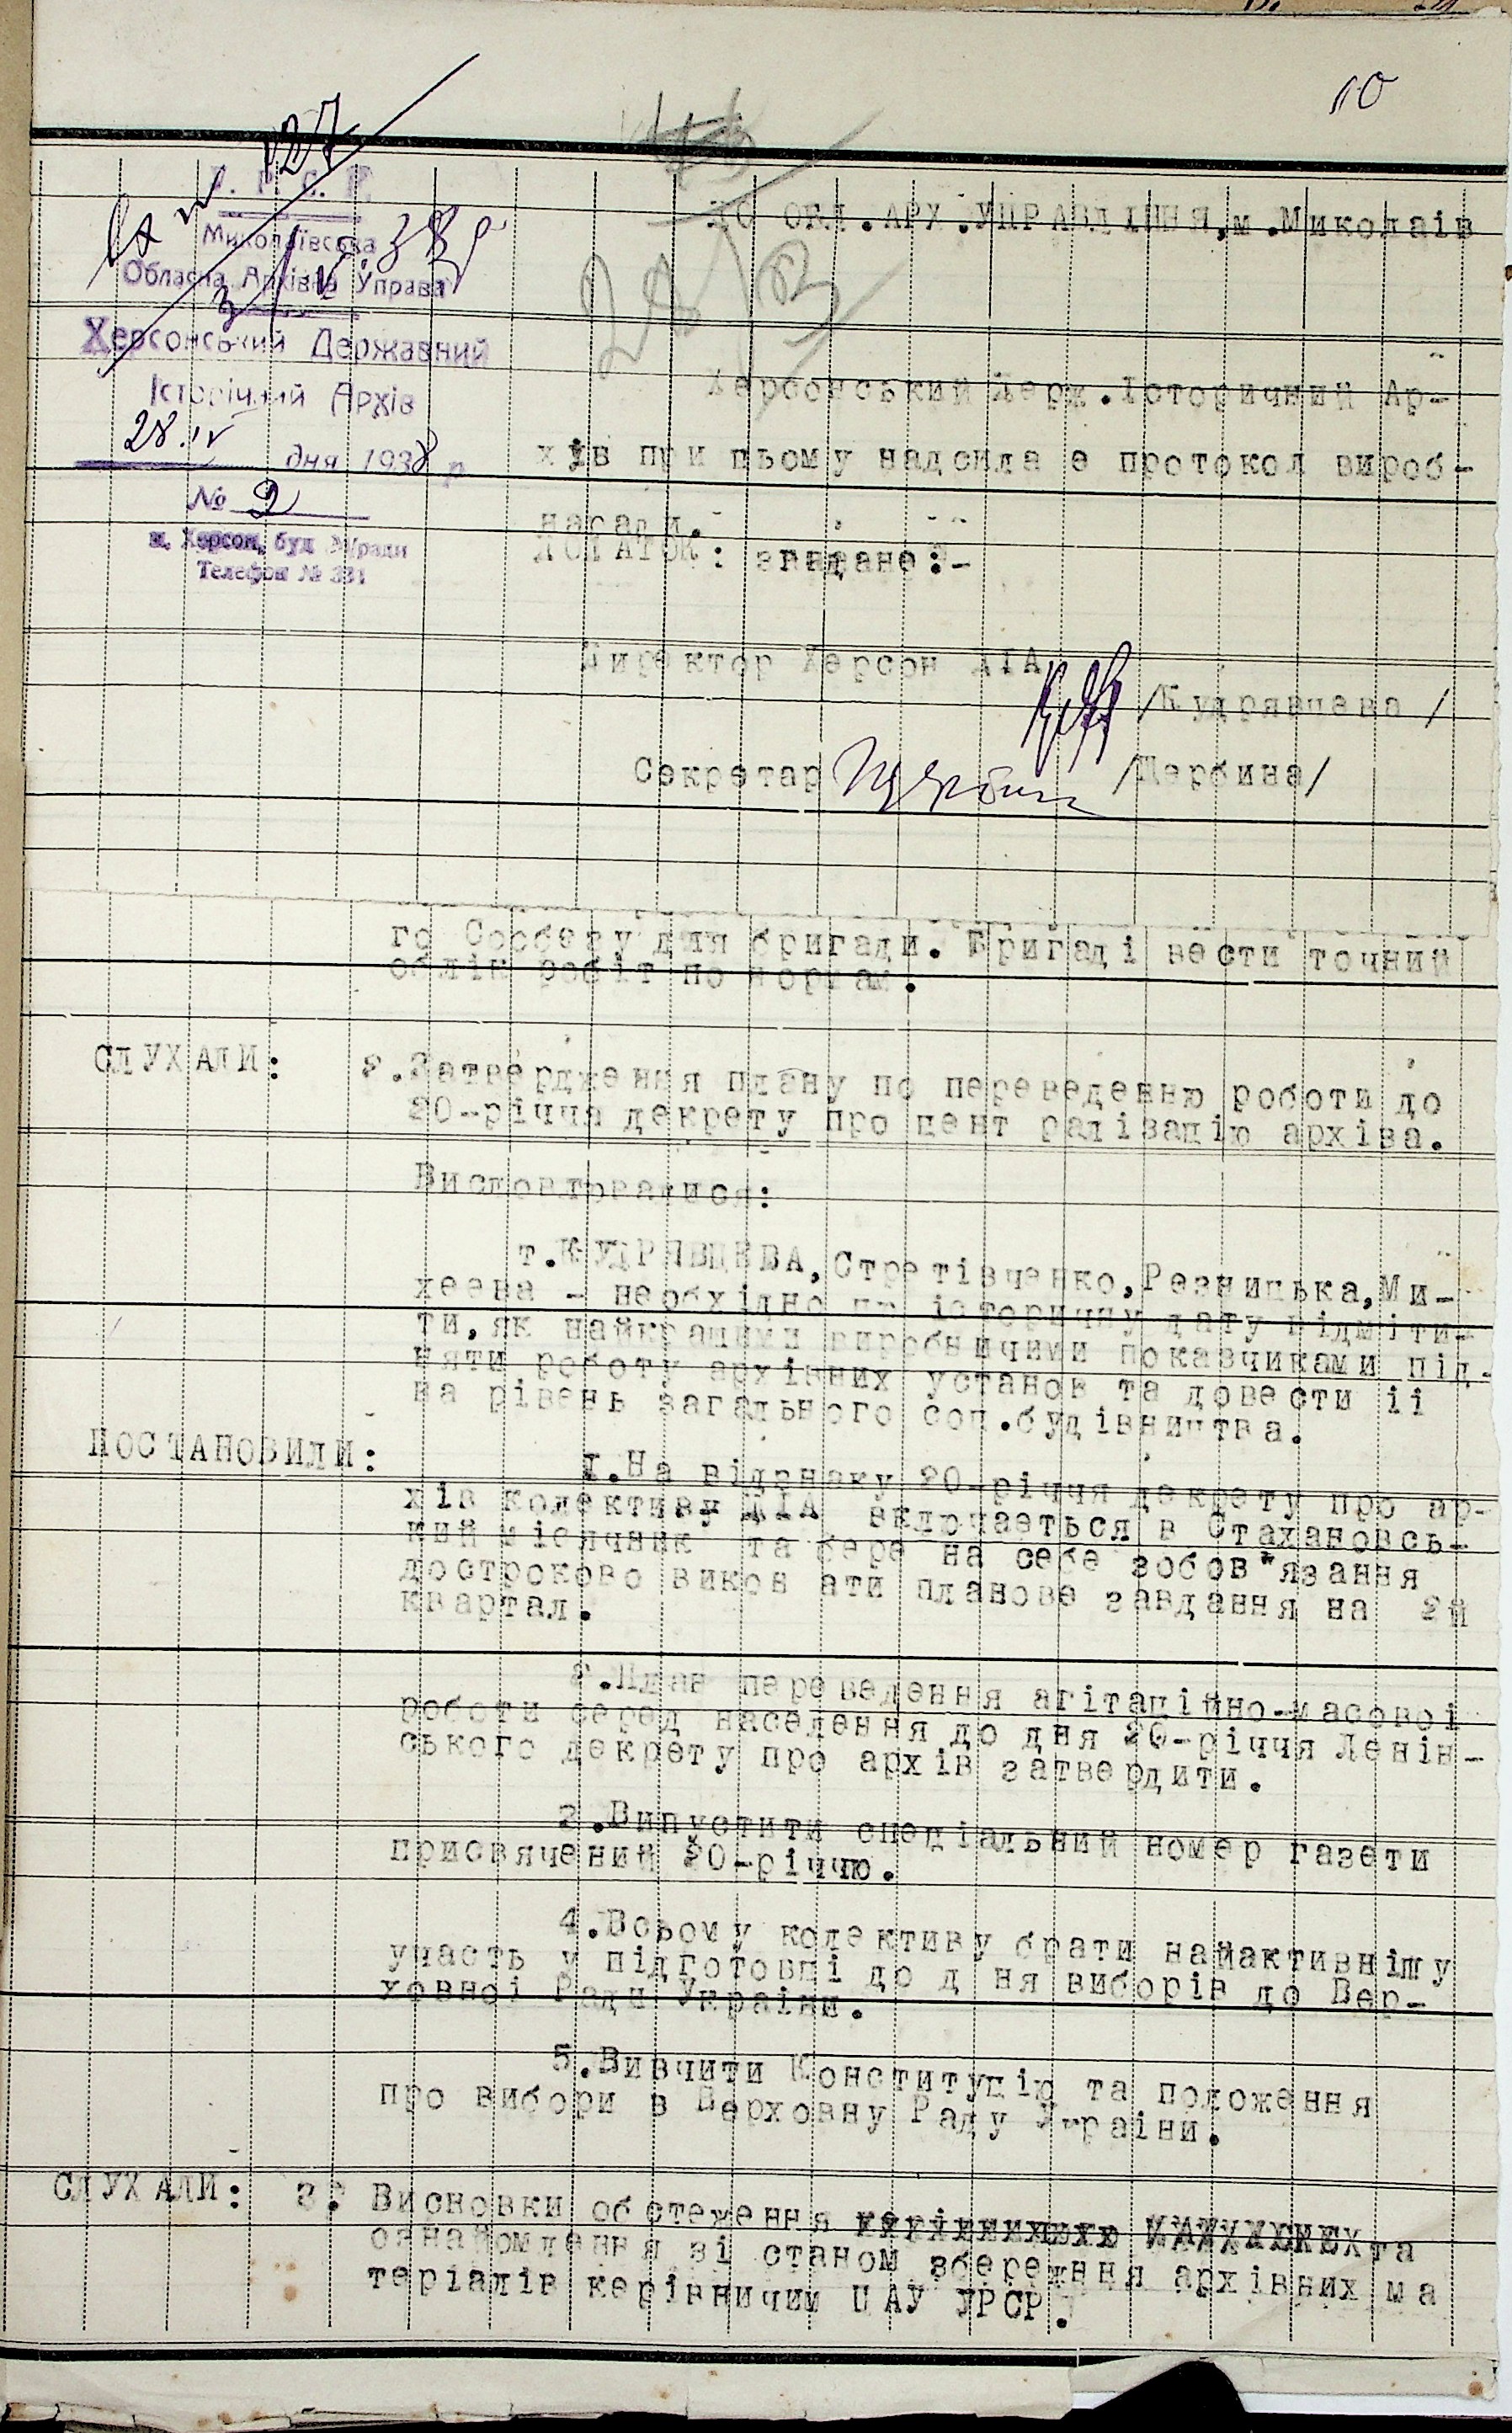 10
вх № 127
3/V 38 р
У. Р. С. Р.
Миколаївська
Обласна Архівна Управа
Херсонський Державний
Історічний Архів
28.IV дня 1938 р
№ 2
м. Херсон, буд М/ради
Телефон № 331
ДО ОБЛ.АРХ.УПРАВЛІННЯ,м.Миколаів
Херсонський Держ.Історичний Ар-
хів при цьому надсила є протокол вироб-
наради.
ДОДАТОК: згадане:-
Директор Херсон ДІА
/Кудрявцева/
Секретар Щербина /Щербина/
го Сосбету для бригади. Бригаді вести точний
облік робіт по нормам.
СЛУХАЛИ: 2.Затвердження плану по переведенню роботи до
20-річчя декрету про цент ралізацію архіва.
Висловлювалися:
т.КУДРЯВЦЕВА,Стретівченко,Резницька,Ми-
хеева - необхідно цю історичну дату відміти-
ти,як найкращими виробничими показчиками під-
няти роботу архівних установ та довести іі
на рівень загального соц.будівництва.
ПОСТАНОВИЛИ:
I.На відзнаку 20-річчя декрету про ар-
хів колектив ДІА включається в Стахановсь-
кий місячник та бере на себе зобов"язання
достроково викон ати планове завдання на 2й
квартал.
2.План переведення агітаційно-масовоі
роботи серед населення до дня 20-річчя Ленін-
ського декрету про архів затвердити.
3.Випустити спеціальний номер газети
присвячений 20-річчю.
4.Всьому колективу брати найактивнішу
участь у підготовці до д ня виборів до Вер-
ховноі Ради Украіни.
5.Вивчити Конституцію та положення
про вибори в Верховну Раду Украіни.
СЛУХАЛИ: 3. Висновки обстеження та
ознайомлення зі станом збереження архівних ма
теріалів керівничим ЦАУ УРСР.